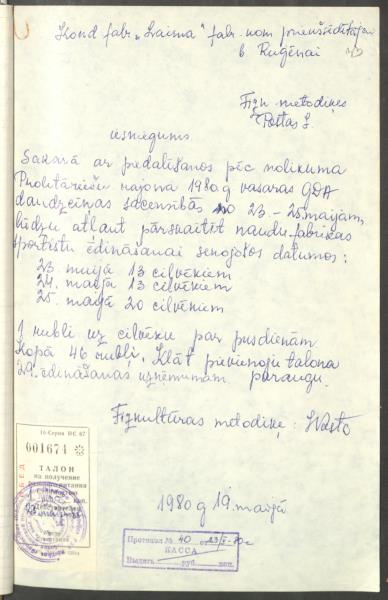 Kond fabr. „Laima" fabr. kom priekšsēdētājai
b Rugēnai
Fizk. metodiķes
Pottas L.
iesniegums
Sakarā ar piedalīšanos pēc nolikuma
Proletāriešu rajona 1980.g vasaras GDA
daudzcīņas sacensībās no 23.-25. maijam,
lūdzu atļaut pārskaitīt naudu fabrikas
sportistu ēdināšanai sekojošos datumos:
23. maijā 13 cilvēkiem
24. maijā 13 cilvēkiem
25. maijā 20 cilvēkiem
1 rubli uz cilvēku par pusdienām
Kopā 46 rubļi. Klāt pievienoju talona
29. ēdināšanas uzņēmumam paraugu.
Fizkultūras metodiķe:
16 Серия НС 67
001674
ТАЛОН
на получение
1980 g 19. maijā
Протокол № 40
КАССА
Выдать руб. коп.